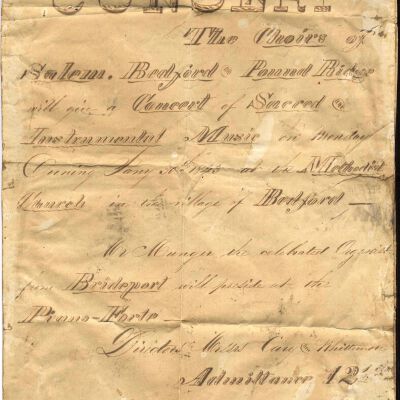 CONCERT
The Choirs of the
Salem. Bedford & Pound Ridge
will give a Concert of Sacred &
Instrumental Music on Monday
Evening Jany at the Methodist
Church in the village of Bedford —
Mr Munger the celebrated Organist
from Bridgeport will preside at the
Piano-Forte —
Directors Messrs &
Admittance 12